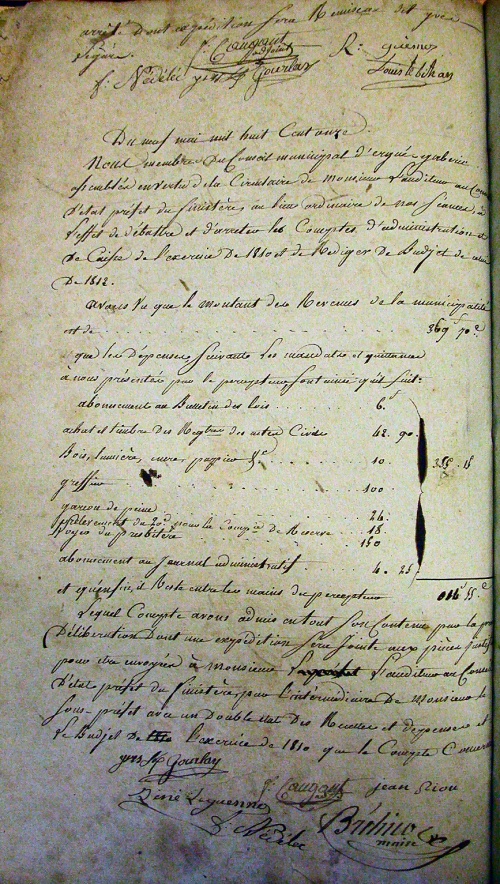 arrêté dont expédition sera Remise au dit yves
Ligné.
J. Caugant
adjoint
R: guenno
f: Nédélec yves Gourlay
Louis le bihan
Du neuf mai mil huit Cent onze.
Nous membres Du Conseil municipal d'ergué gaberic
assemblés en vertu de la Circulaire de Monsieur L'auditeur au Con
D'etat préfet du finistère, au lieu ordinaire de nos Séances, à
L'effet de débattre et d'arreter les Comptes d'administration et
De Caisse de l'exercice De 1810 et de Rediger Le Budjet de
De 1812.
avons Vu que le montant des Revenus de la municipalité
est de . . . . . . . . 369 f 70 c
que les dépenses suivantes Les mandats et quittances
à nous présentés par le percepteur, Sont ainsi qu'il Suit:
abonnement au Bulletin des lois . . . . . 6 f
achat et timbre Des Registres des actes Civils 42. 90.
Bois, lumière, encre, pappier &a . . . . . 10.
355. 15
greffier . . . . . 100
garcon de peine . . . . . 24.
prélèvement du 20e pour la Compie De Reserve . . 18.
loyer du presbitère . . . . . 150
abonnement au Journal administratif . . . . 4. 25
et qu'enfin, il Reste entre les mains du percepteur 014 f 55 c
Lequel Compte avons admis en tout Son Contenu par la
Déliberation Dont une expédition Sera Jointe aux pièces
pour etre envoyée à Monsieur L'auditeur au Conseil
D'etat, préfet du finistère, par l'intermédiaire De Monsieur le
Sous-préfet avec un Double état Des Recettes et dépenses et
Le Budjet De l'exercice de 1810 que le Compte Concerne
yves Gourlay
J. Caugant jean Riou
Réné Leguenno
f Nédélec
Bréhier
maire